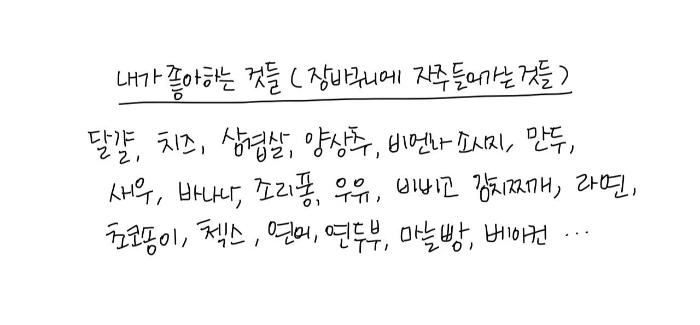 내가 좋아하는 것들 (장바구니에 자주 들어가는 것들)
달걀, 치즈, 삼겹살, 양상추, 비엔나 소시지, 만두,
새우, 바나나, 조리퐁, 우유, 비비고 김치찌개, 라면,
초코송이, 첵스, 연어, 연두부, 마늘빵, 베이컨 ...